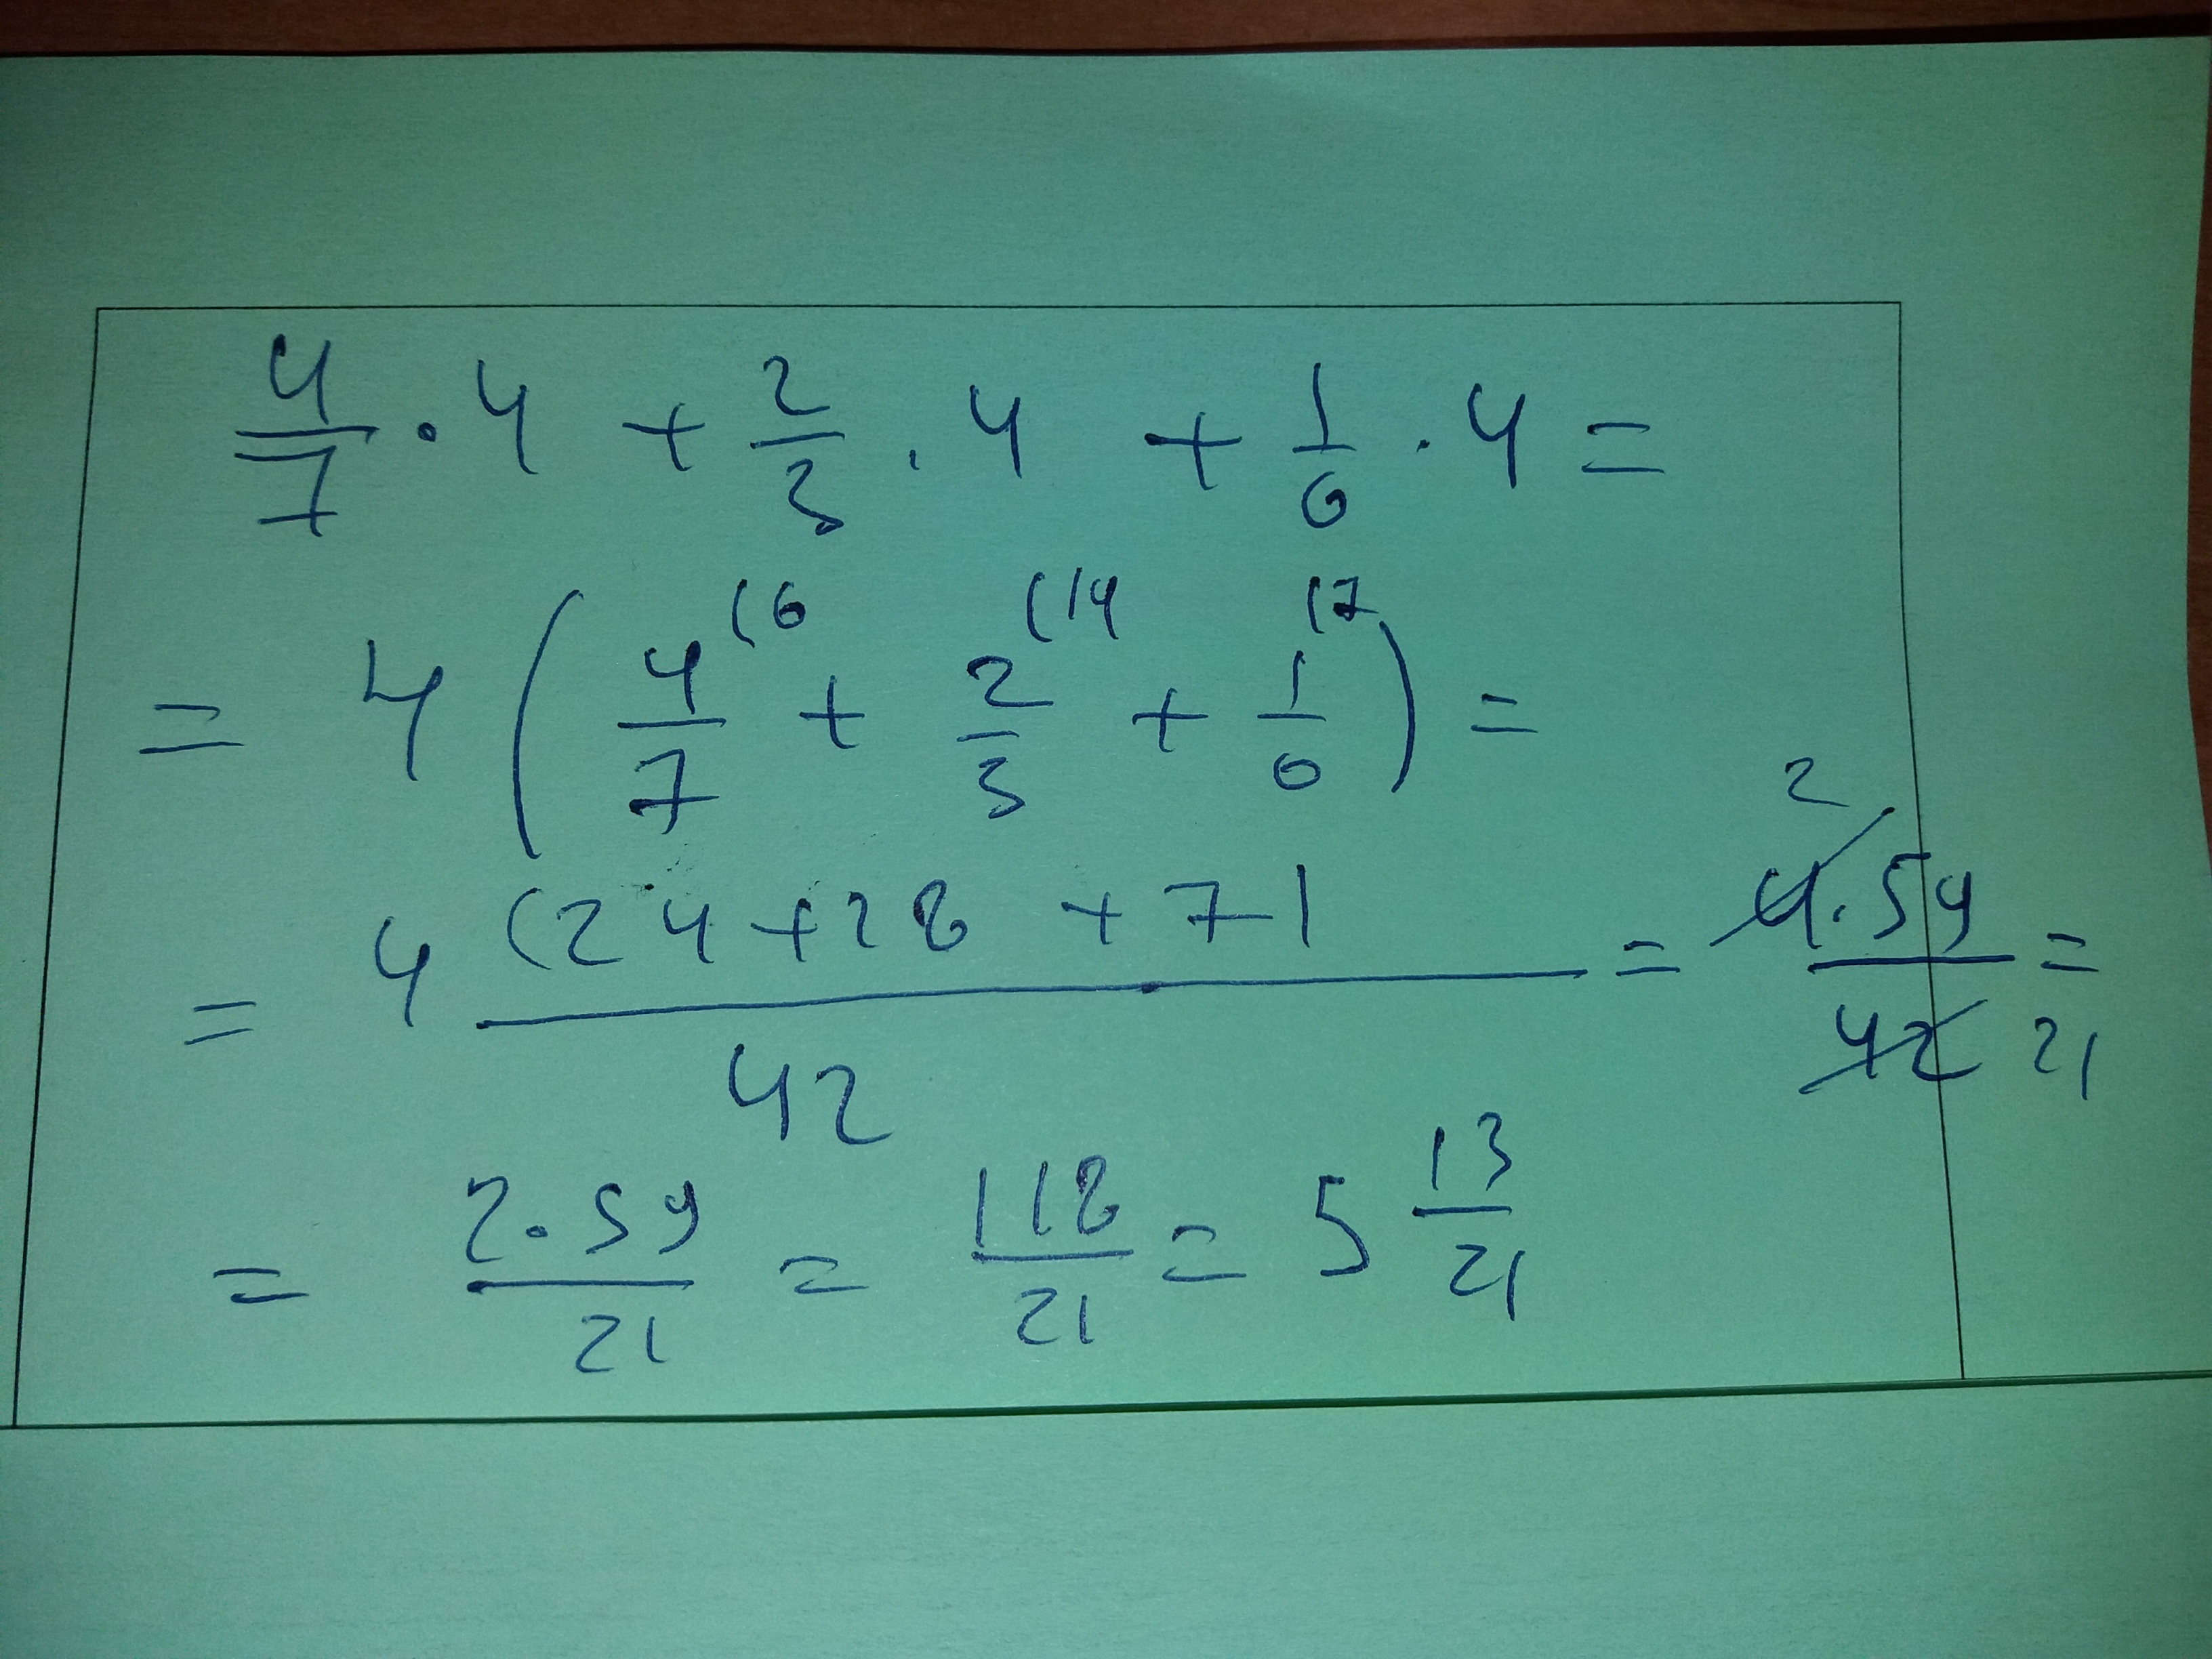 4/7 · 4 + 2/3 · 4 + 1/6 · 4 =
= 4 ( 4/7 (6 + 2/3 (14 + 1/6 (7 ) =
= 4 (24 + 28 + 7) / 42 = 4 · 59 / 42 = 2 21
= 2 · 59 / 21 = 118 / 21 = 5 13/21